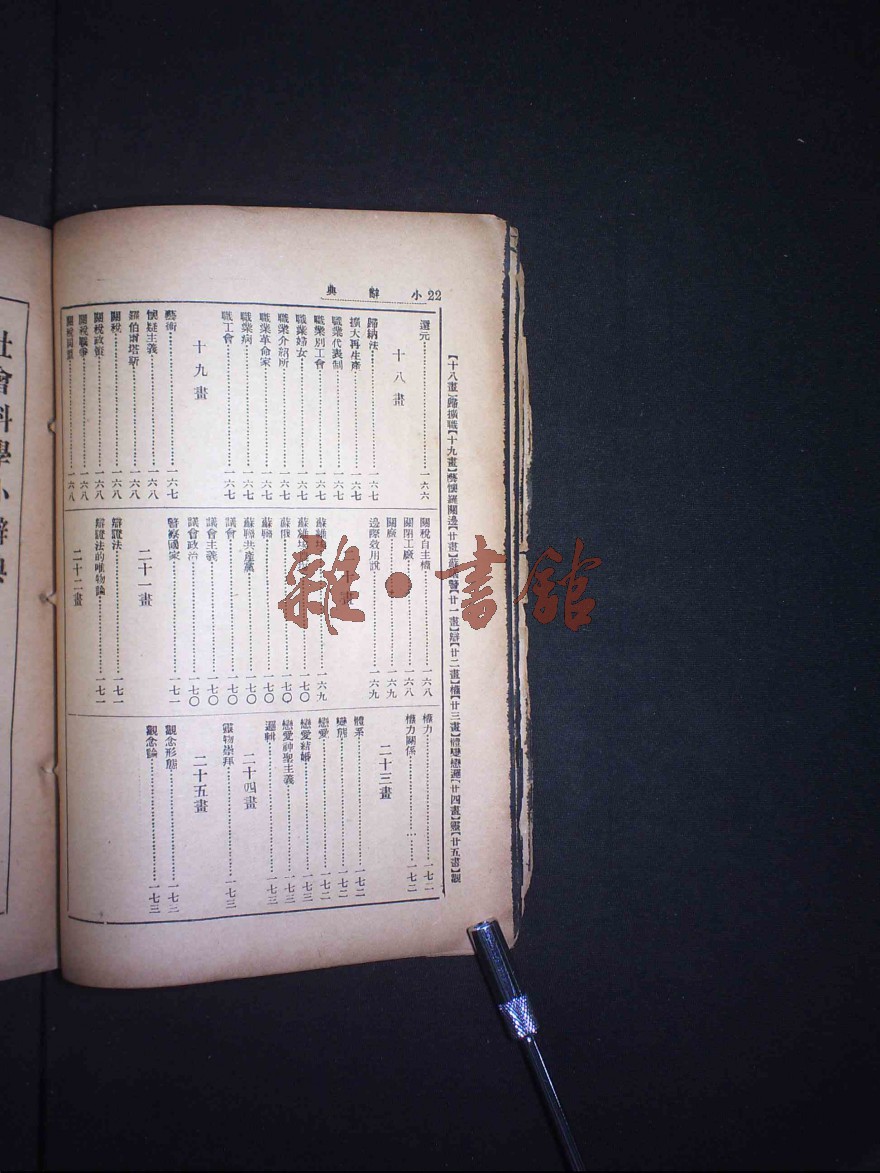 小辭典 22
【十八畫】歸擴職【十九畫】藝懷羅關邊【廿畫】蘇議警【廿一畫】辯【廿二畫】權【廿三畫】體變戀邏【廿四畫】靈【廿五畫】觀
還元……一六六
十八畫
歸納法……一六七
擴大再生產……一六七
職業代表制……一六七
職業別工會……一六七
職業婦女……一六七
職業介紹所……一六七
職業革命家……一六七
職業病……一六七
職工會……一六七
十九畫
藝術……一六七
懷疑主義……一六八
羅伯爾塔斯……一六八
關稅……一六八
關稅政策……一六八
關稅戰爭……一六八
關稅同盟……一六八
關稅自主權……一六八
關閉工廠……一六八
關廠……一六九
邊際效用說……一六九
二十畫
一六九
一七〇
蘇俄……一七〇
蘇聯……一七〇
蘇聯共產黨……一七〇
議會……一七〇
議會主義……一七〇
議會政治……一七〇
警察國家……一七一
二十一畫
辯證法……一七一
辯證法的唯物論……一七一
二十二畫
權力……一七二
權力關係……一七二
二十三畫
體系……一七二
變態……一七二
戀愛……一七二
戀愛結婚……一七三
戀愛神聖主義……一七三
邏輯……一七三
二十四畫
靈物崇拜……一七三
二十五畫
觀念形態……一七三
觀念論……一七三
社會科學小辭典
雜·書館